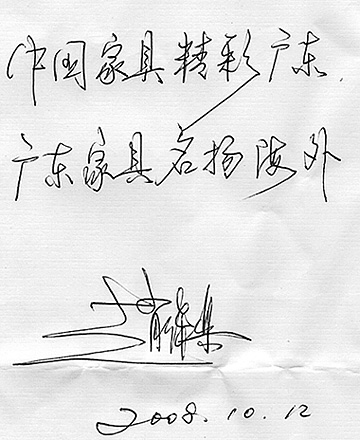 中国家具精彩广东.
广东家具名扬海外
2008.10.12